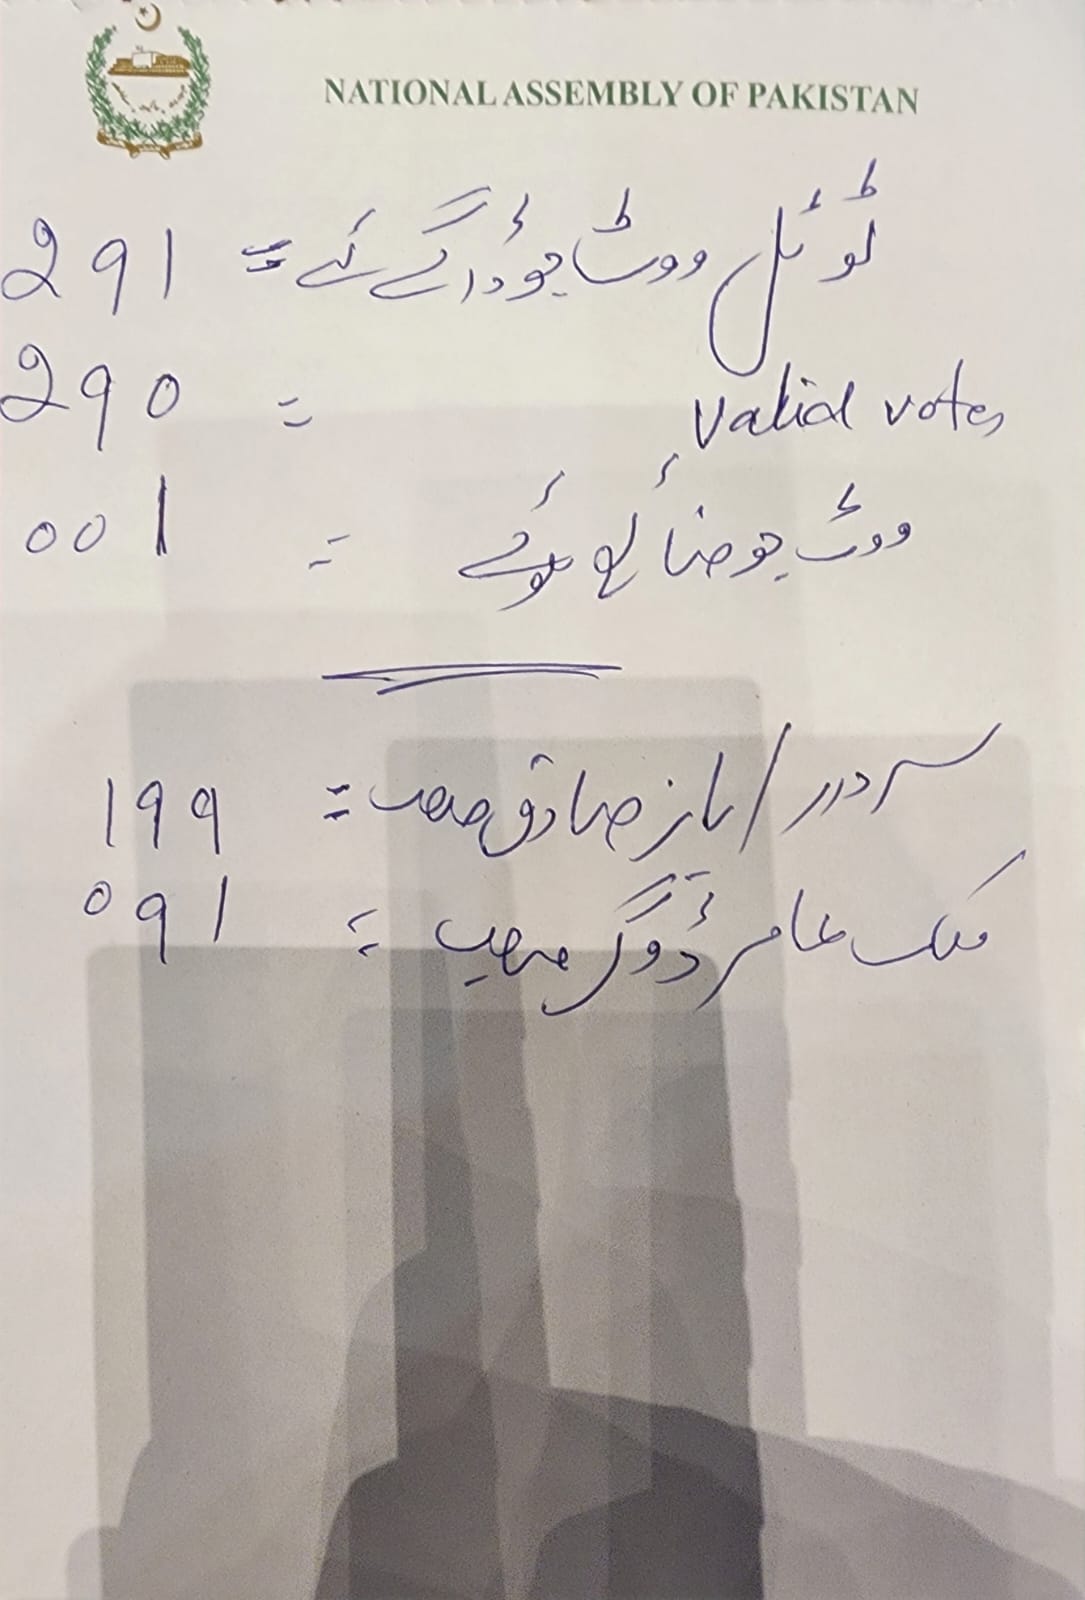 NATIONAL ASSEMBLY OF PAKISTAN
ٹوٹل ووٹ جو ڈالے گئے = 291
valid votes = 290
ووٹ جو ضائع ہوئے = 001
سردار ایاز صادق صاحب = 199
ملک عامر ڈوگر صاحب = 091